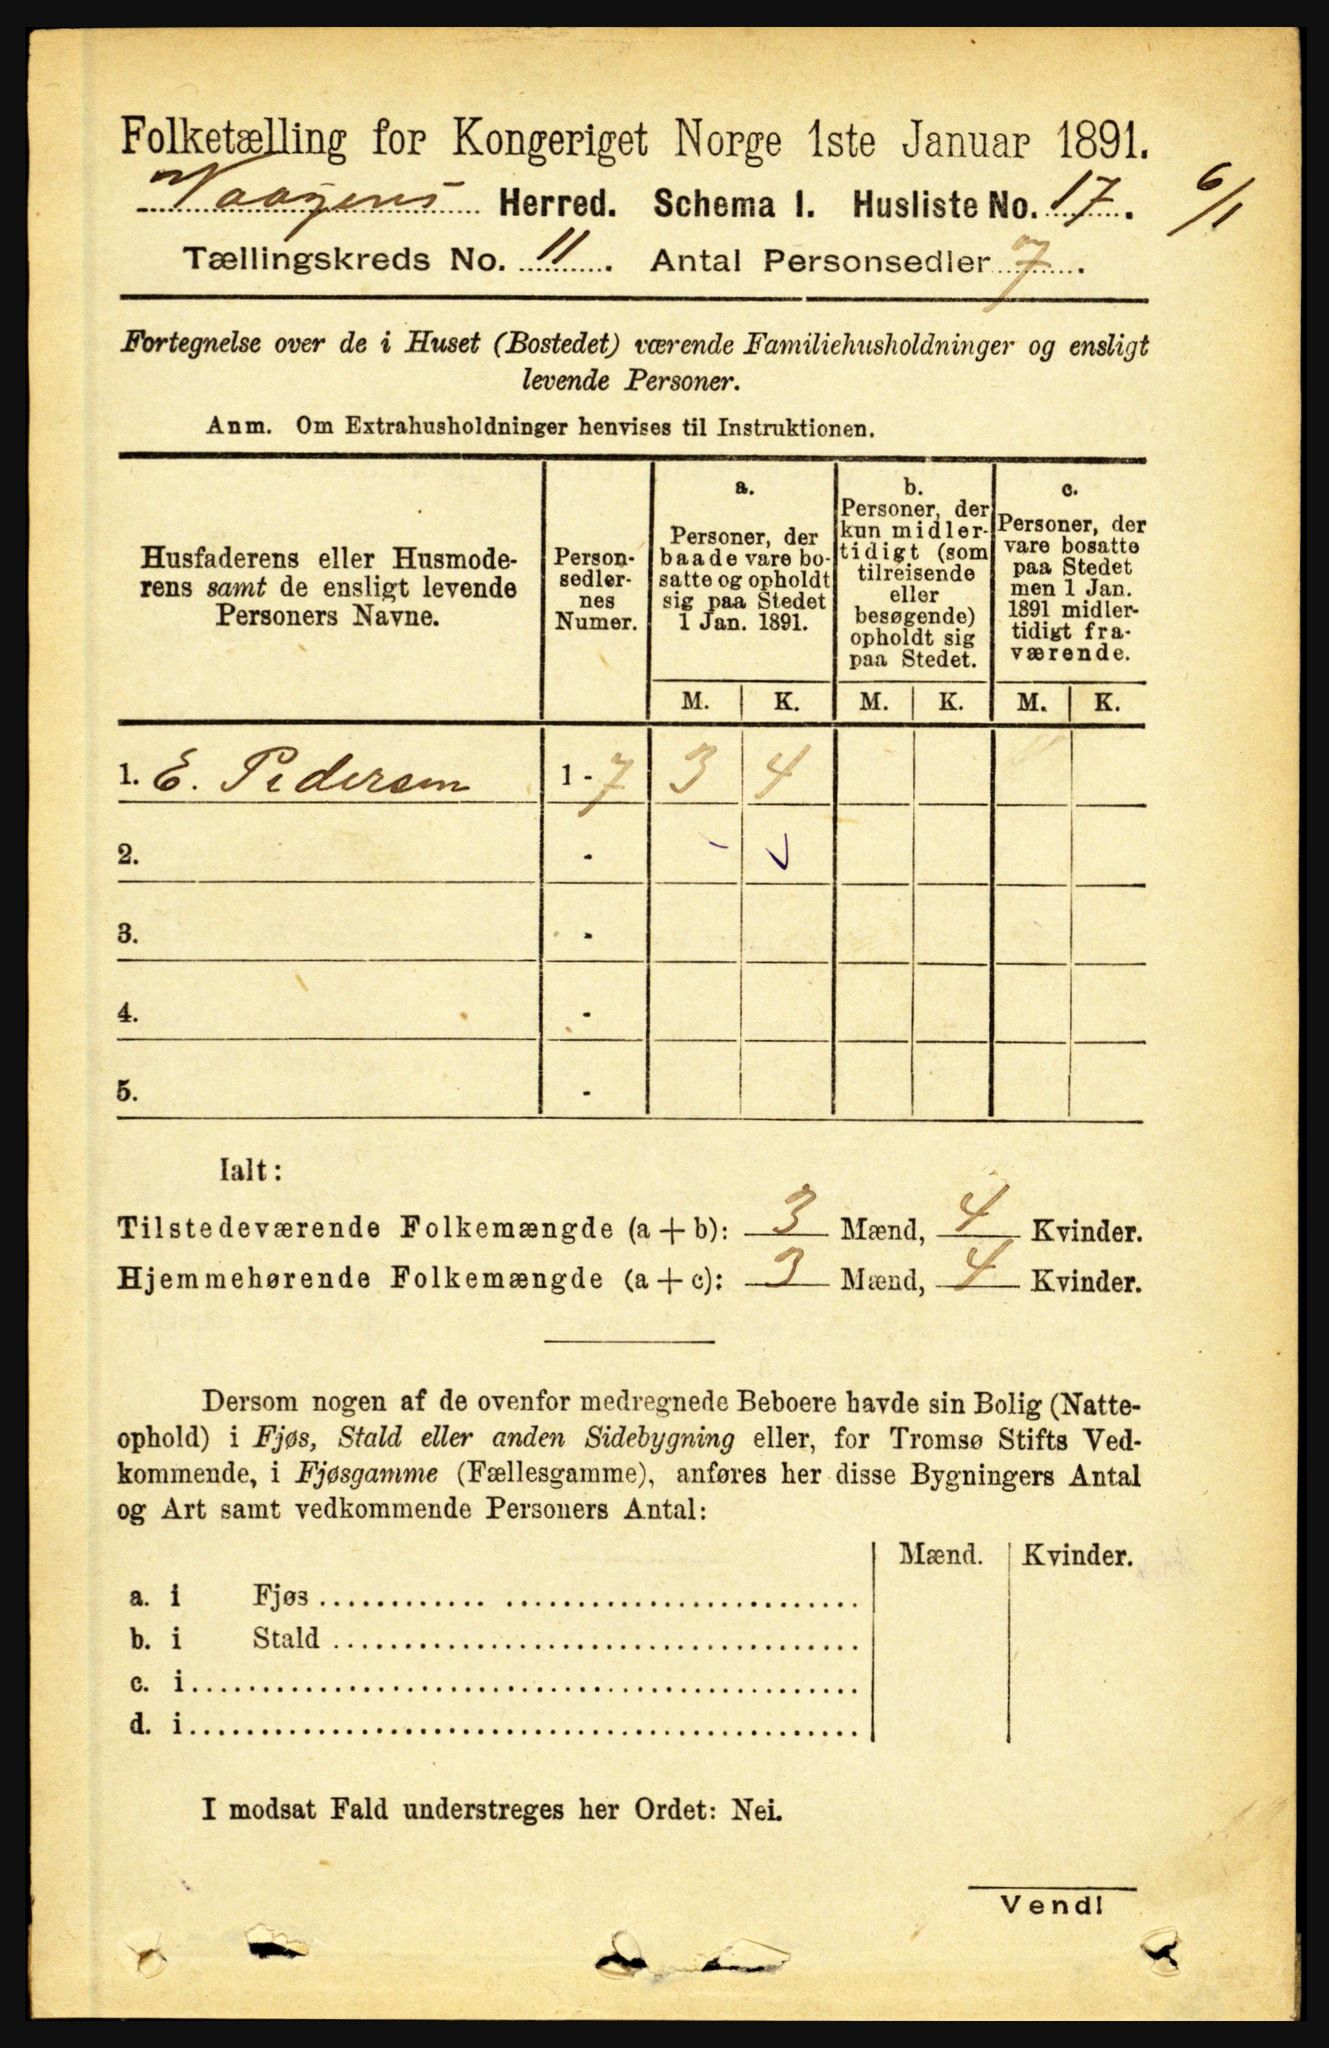 Folketælling for Kongeriget Norge 1ste Januar 1891.
Vaagens Herred. Schema 1. Husliste No. 17. 6/1
Tællingskreds No. 11. Antal Personsedler 7.
Fortegnelse over de i Huset (Bostedet) værende Familiehusholdninger og ensligt
levende Personer.
Anm. Om Extrahusholdninger henvises til Instruktionen.
Husfaderens eller Husmode-
rens samt de ensligt levende
Personers Navne.
Person-
sedler-
nes
Numer.
a.
Personer, der
baade vare bo-
satte og opholdt
sig paa Stedet
1 Jan. 1891.
b.
Personer, der
kun midler-
tidigt (som
tilreisende
eller
besøgende)
opholdt sig
paa Stedet.
c.
Personer, der
vare bosatte
paa Stedet
men 1 Jan.
1891 midler-
tidigt fra-
værende.
M. K. M. K. M. K.
1. E. Pedersen 1 - 7 3 4
2. -
3. -
4. -
5. -
Ialt:
Tilstedeværende Folkemængde (a + b): 3 Mænd, 4 Kvinder.
Hjemmehørende Folkemængde (a + c): 3 Mænd, 4 Kvinder.
Dersom nogen af de ovenfor medregnede Beboere havde sin Bolig (Natte-
ophold) i Fjøs, Stald eller anden Sidebygning eller, for Tromsø Stifts Ved-
kommende, i Fjøsgamme (Fællesgamme), anføres her disse Bygningers Antal
og Art samt vedkommende Personers Antal:
Mænd. Kvinder.
a. i Fjøs
b. i Stald
c. i
d. i
I modsat Fald understreges her Ordet: Nei.
Vend!